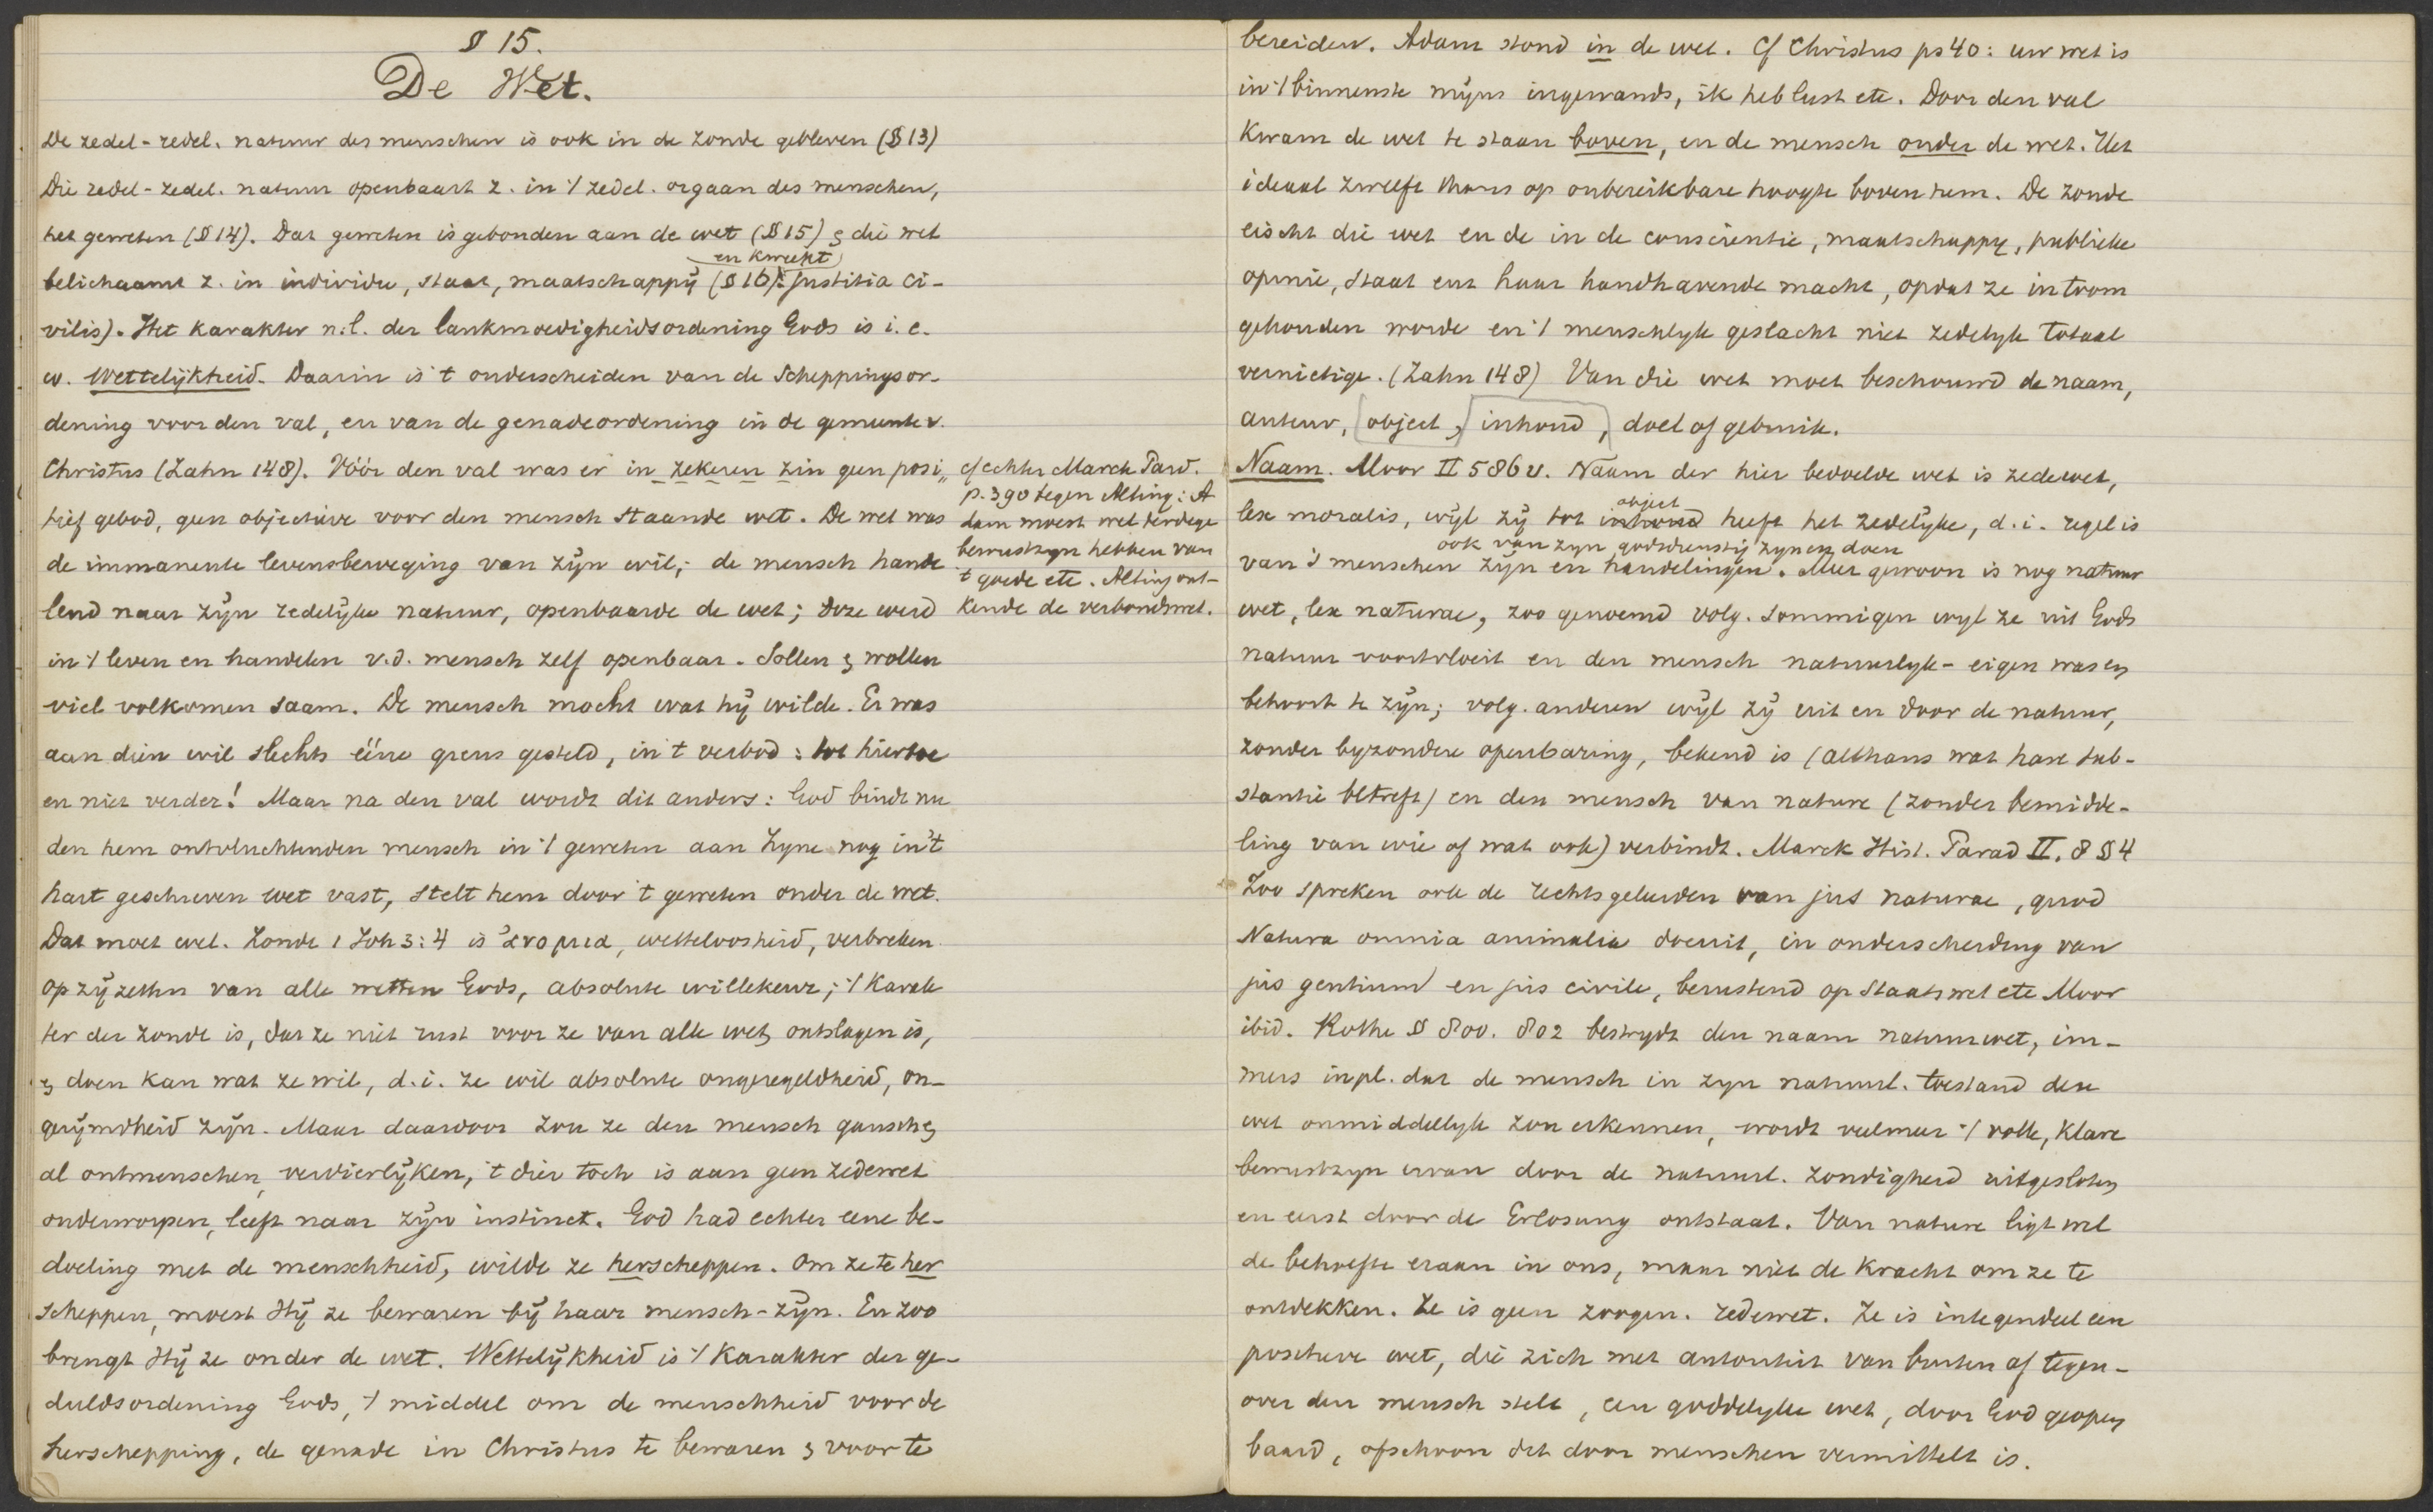 § 15.
De Wet.
De zedel-redel. natuur des menschen is ook in de zonde gebleven (§ 13)
Die redel-zedel. natuur openbaart z. in 't zedel. orgaan des menschen,
het geweten (§ 14). Dat geweten is gebonden aan de wet (§ 15) & die wet
en kweekt
belichaamt z. in individu, staat, maatschappij (§ 16): Justitia ci-
vilis). Het karakter n.l. der lankmoedigheidsordening Gods is i. e.
w. Wettelijkheid. Daarin is 't onderscheiden van de Scheppingsor-
dening voor den val, en van de genadeordening in de gemeente v.
Christus (Zahn 148). Vóór den val was er in zekeren zin geen posi„
tief gebod, geen objectieve voor den mensch staande wet. De wet was
de immanente levensbeweging van zijn wil; de mensch hande
lend naar zijn zedelijke natuur, openbaarde de wet; deze werd
in 't leven en handelen v.d. mensch zelf openbaar. Sollen & wollen
viel volkomen saam. De mensch mocht wat hij wilde. Er was
aan dien wil slechts ééne grens gesteld, in 't verbod: tot hiertoe
en niet verder! Maar na den val wordt dit anders: God bindt nu
den hem ontvluchtenden mensch in 't geweten aan Zyne nog in 't
hart geschreven wet vast, stelt hem door 't geweten onder de wet.
Dat moet wel. Zonde 1 Joh 3:4 is ἀνομια, wetteloosheid, verbreken
op zij zetten van alle wetten Gods, absolute willekeur; 't karak
ter der zonde is, dat ze niet rust voor ze van alle wet ontslagen is,
& doen kan wat ze wil, d.i. ze wil absolute ongeregeldheid, on-
gerijmdheid zijn. Maar daardoor zou ze den mensch gansch &
al ontmenschen, verdierlijken, 't dier toch is aan geen zedewet
onderworpen, leeft naar zijn instinct. God had echter eene be-
doeling met de menschheid, wilde ze herscheppen. Om ze te her
scheppen, moest Hij ze bewaren bij haar mensch-zijn. En zoo
brengt Hij ze onder de wet. Wettelijkheid is 't karakter der ge-
duldsordening Gods, 't middel om de menschheid voor de
herschepping, de genade in Christus te bewaren & voor te
cf echter Marck Parad.
p. 390 tegen Alting: A
dam moest wel terdege
bewustzyn hebben van
't goede etc. Alting ont-
kende de verbondswet.
bereiden. Adam stond in de wet. Cf Christus ps 40: uw wet is
in 't binnenste mijns ingewands, ik heb lust etc. Door den val
kwam de wet te staan boven, en de mensch onder de wet. Het
ideaal zweeft thans op onbereikbare hoogte boven hem. De zonde
eischt die wet en de in de conscientie, maatschappy, publieke
opinie, staat enz haar handhavende macht, opdat ze in toom
gehouden worde en 't menschlyk geslacht niet zedelyk totaal
vernietige. (Zahn 148) Van die wet moet beschouwd de naam,
auteur, object, inhoud, doel of gebruik.
Naam. Moor II 586 v. Naam der hier bedoelde wet is zedewet,
object
lex moralis, wijl zij tot inhoud heeft het zedelijke, d.i. regel is
ook van zyn godsdienstig zyn en doen
van 's menschen zijn en handelingen. Meer gewoon is nog natuur
wet, lex naturae, zoo genoemd volg. sommigen wyl ze uit Gods
natuur voortvloeit en den mensch natuurlyk-eigen was en
behoort te zijn; volg. anderen wijl zij uit en door de natuur,
zonder byzondere openbaring, bekend is (althans wat hare sub-
stantie betreft) en den mensch van nature (zonder bemidde-
ling van wie of wat ook) verbindt. Marck Hist. Parad II, 8 § 4
Zoo spreken ook de rechtsgeleerden van jus naturae, quod
Natura omnia animalia docuit, in onderscheiding van
jus gentium en jus civile, berustend op staatswet etc Moor
ibid. Rothe § 800. 802 bestrydt den naam natuurwet, im-
mers in pl. dat de mensch in zyn natuurl. toestand deze
wet onmiddellyk zou erkennen, wordt veelmeer 't volle, klare
bewustzyn ervan door de natuurl. zondigheid uitgesloten
en eerst door de Erlosung ontstaat. Van nature ligt wel
de behoefte eraan in ons, maar niet de kracht om ze te
ontdekken. Ze is geen zoogen. redewet. Ze is integendeel een
positieve wet, die zich met autoriteit van buiten af tegen-
over den mensch stelt, een goddelyke wet, door God geopen
baard, ofschoon dit door menschen vermittelt is.